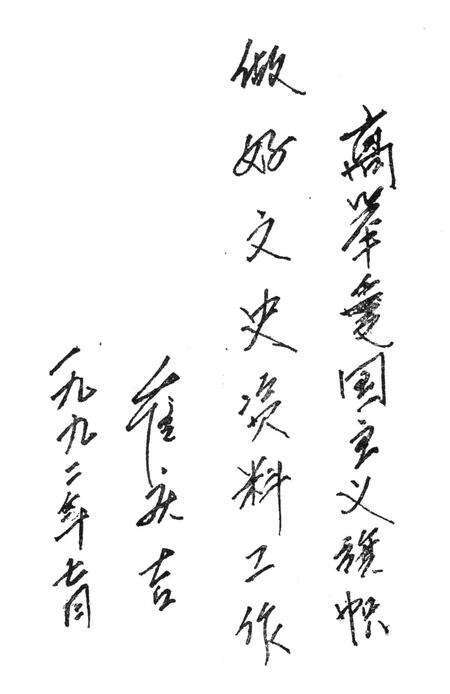 高举爱国主义旗帜
做好文史资料工作
崔永吉
一九九二年七月